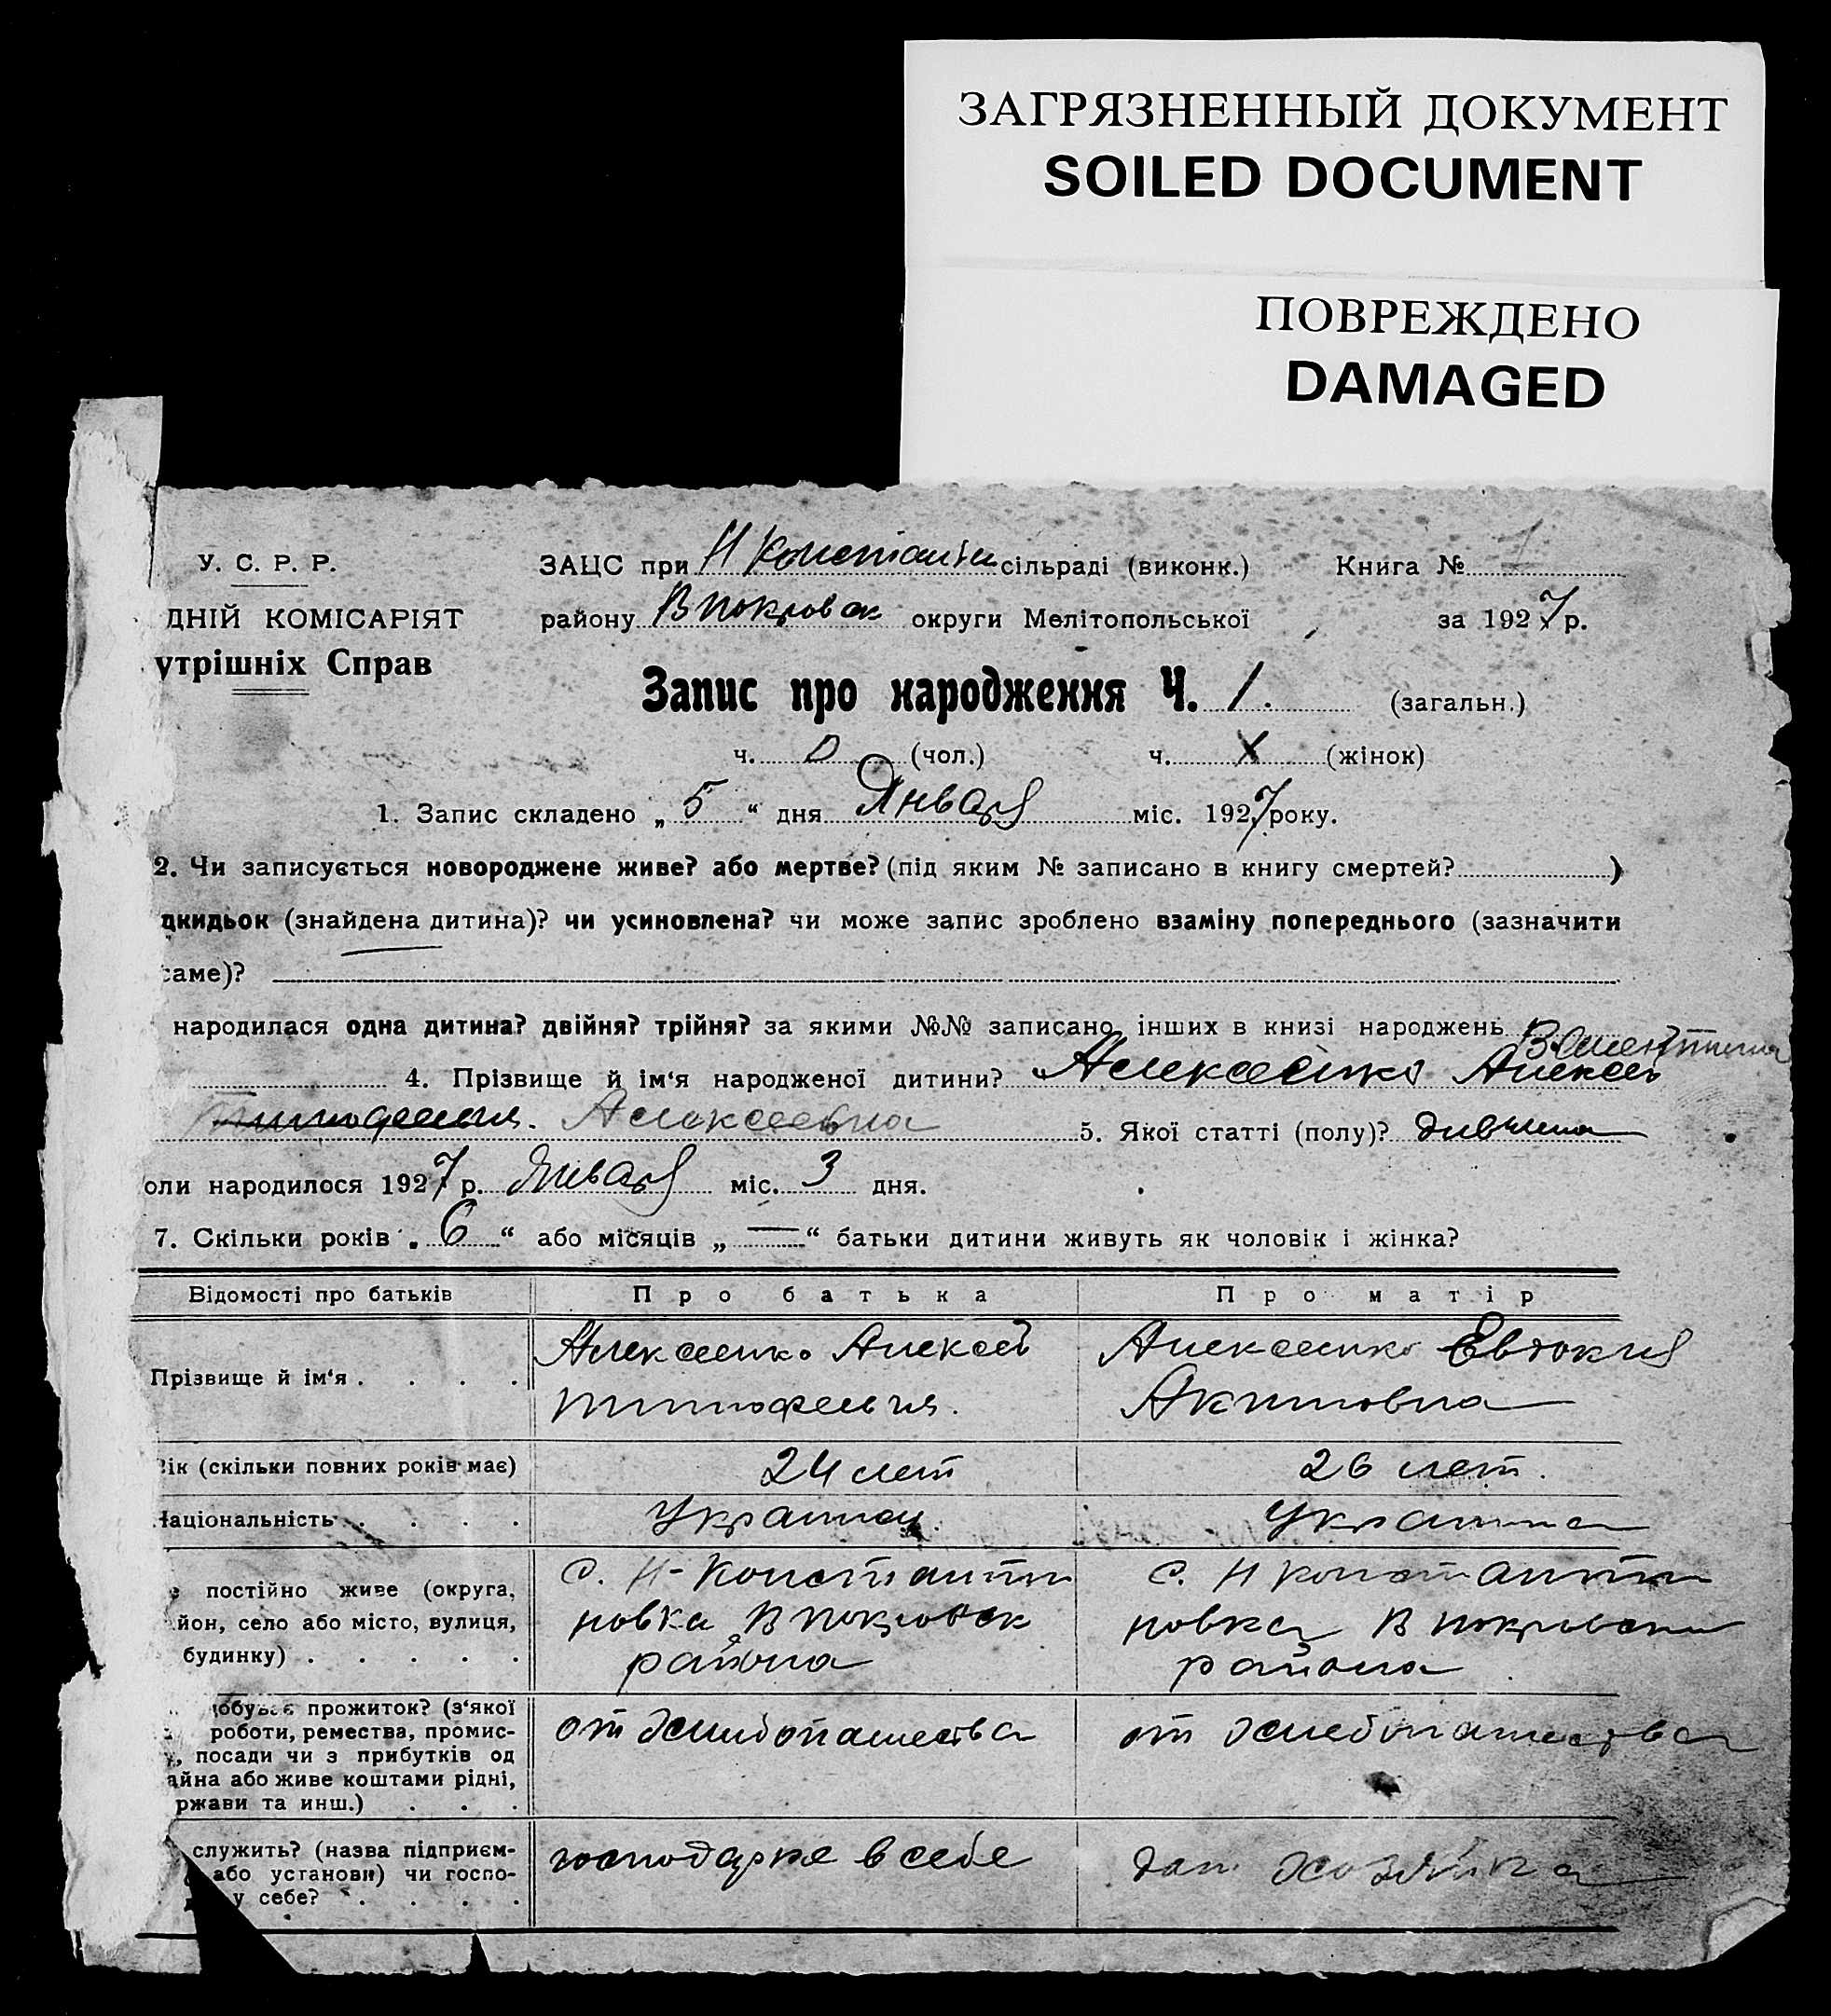 ЗАГРЯЗНЕННЫЙ ДОКУМЕНТ
SOILED DOCUMENT
ПОВРЕЖДЕНО
DAMAGED
У. С. Р. Р.
ЗАЦС при Н Константин сільраді (виконк.) Книга № 1
ДНІЙ КОМІСАРІЯТ
району В Покровск округи Мелітопольської за 1927 р.
утрішніх Справ
Запис про народження Ч. 1. (загальн.)
ч. 0 (чол.) ч. X (жінок)
1. Запис складено „ 5 “ дня Января міс. 1927 року.
2. Чи записується новороджене живе? або мертве? (під яким № записано в книгу смертей? )
дкидьок (знайдена дитина)? чи усиновлена? чи може запис зроблено взаміну попереднього (зазначити
саме)?
народилася одна дитина? двійня? трійня? за якими №№ записано інших в книзі народжень
Валентина
4. Прізвище й ім‘я народженої дитини? Алексеенко Алексей
Тимофеевич. Алексеевна 5. Якої статті (полу)? дивчина
оли народилося 1927 р. Января міс. 3 дня.
7. Скільки років „ 6 “ або місяців „ — “ батьки дитини живуть як чоловік і жінка?
Відомості про батьків Про батька Про матір
Прізвище й ім‘я . . . . Алексеенко Алексей Алексеенко Евдокия
Тимофеевич. Акимовна
ік (скільки повних років має) 24 лет 26 лет.
Національність . . . . Украинец. Украинка
с. Н-Константи с. Н Константи
постійно живе (округа,
йон, село або місто, вулиця, новка В Покровск новка В Покровск
будинку) . . . . . района района
обуває прожиток? (з‘якої
роботи, ремества, промис- от хлибопашества от хлебопашества
, посади чи з прибутків од
айна або живе коштами рідні,
ржави та инш.) . . .
служить? (назва підприєм- господарке в себе дом хозяйка
або установи) чи госпо-
у себе? . . . .